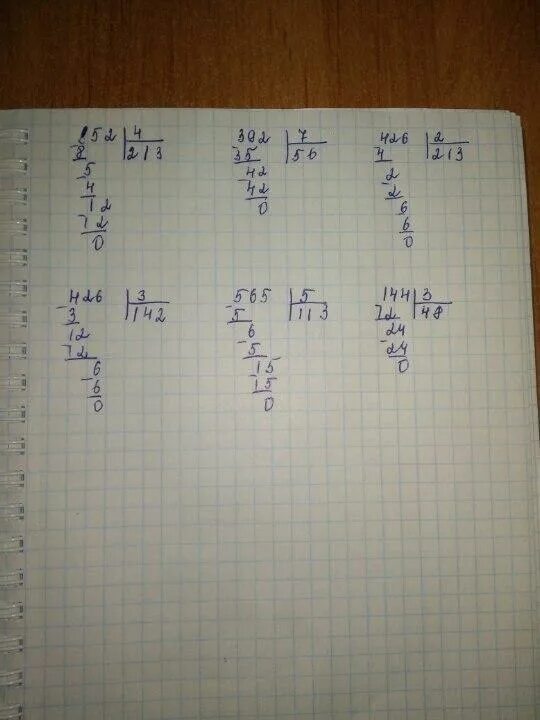 852 | 4
-8 | 213
5
-4
12
-12
0
392 | 7
-35 | 56
42
-42
0
426 | 2
-4 | 213
2
-2
6
6
0
426 | 3
-3 | 142
12
-12
6
-6
0
565 | 5
-5 | 113
6
-5
15
-15
0
144 | 3
-12 | 48
24
-24
0